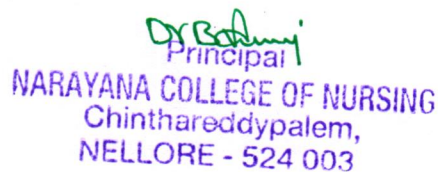 Dr
Principal
NARAYANA COLLEGE OF NURSING
Chinthareddypalem,
NELLORE - 524 003